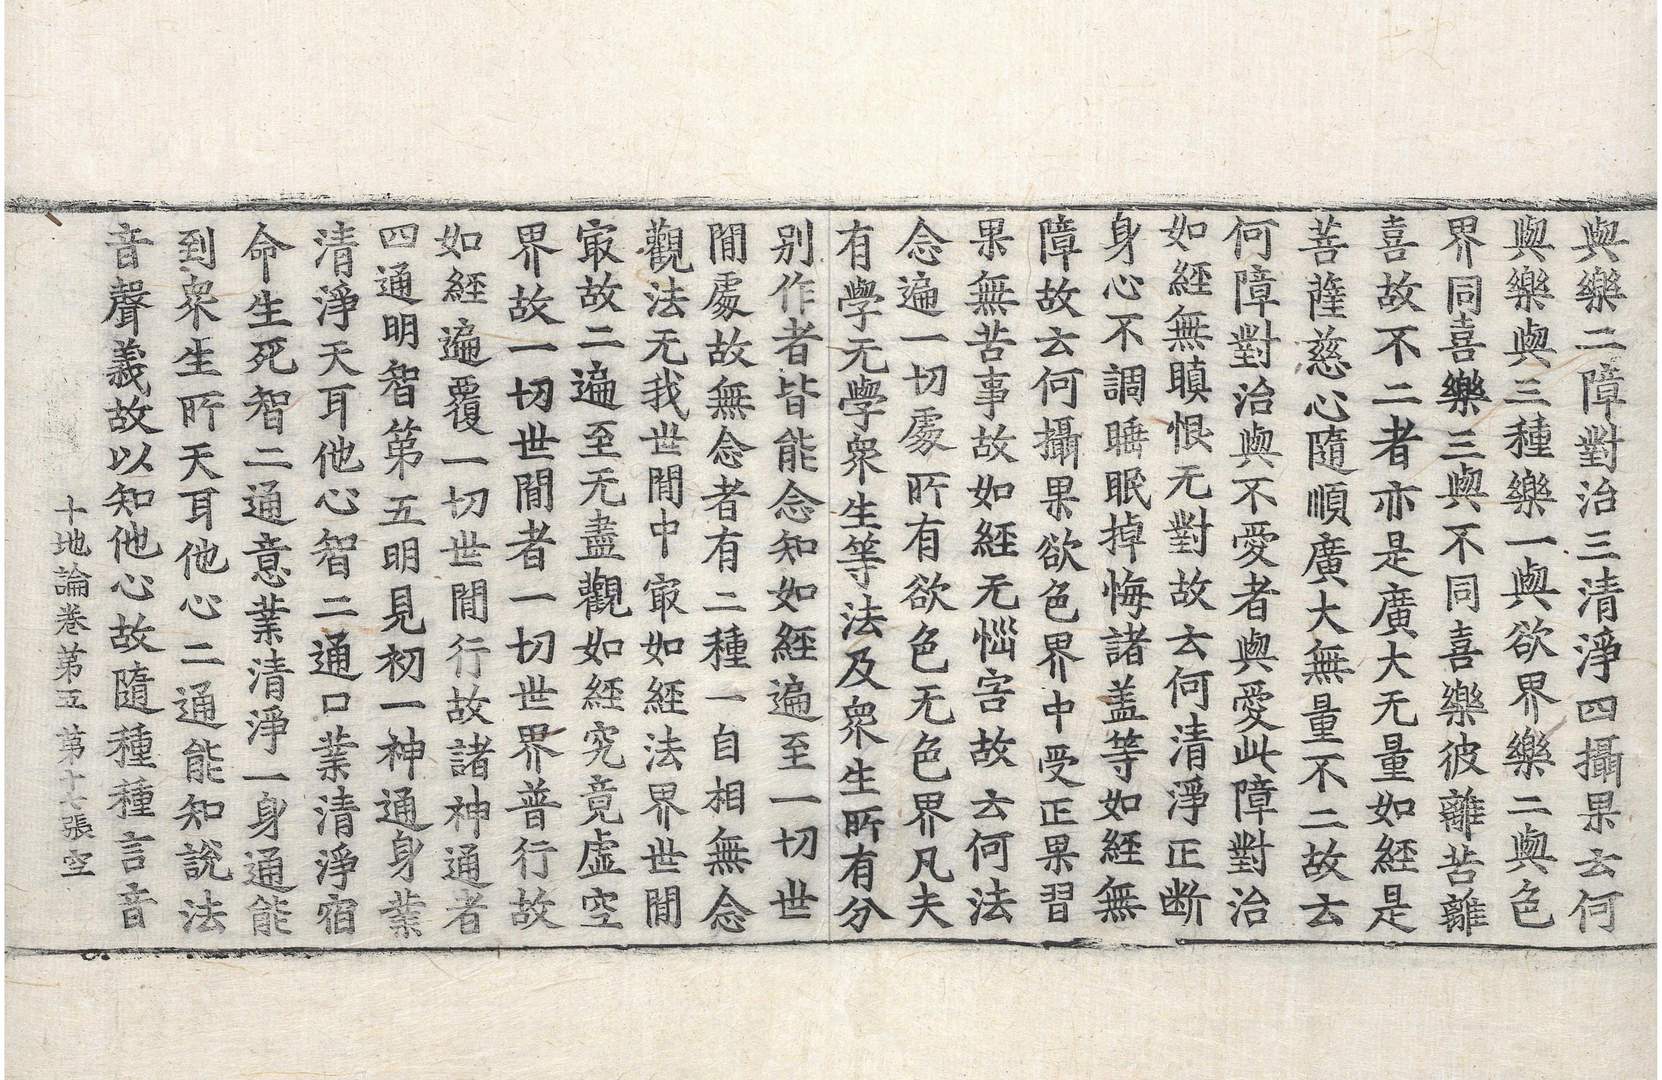 與樂二障對治三清淨四攝果云何
與樂與三種樂一與欲界樂二與色
界同喜樂三與不同喜樂彼離苦離
喜故不二者亦是廣大无量如經是
菩薩慈心隨順廣大無量不二故云
何障對治與不愛者與愛此障對治
如經無瞋恨无對故云何清淨正断
身心不調睡眠掉悔諸盖等如經無
障故云何攝果欲色界中受正果習
果無苦事故如經无惱害故云何法
念遍一切處所有欲色无色界凡夫
有學无學衆生等法及衆生所有分
别作者皆能念知如經遍至一切世
間處故無念者有二種一自相無念
觀法无我世間中㝡如經法界世間
㝡故二遍至无盡觀如經究竟虚空
界故一切世間者一切世界普行故
如經遍覆一切世間行故諸神通者
四通明智第五明見初一神通身業
清淨天耳他心智二通口業清淨宿
命生死智二通意業清淨一身通能
到衆生所天耳他心二通能知說法
音聲義故以知他心故隨種種言音
十地論卷第五 第十七張 空